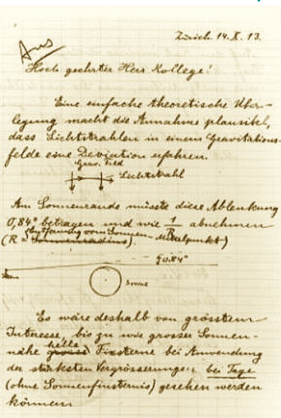 Zürich. 14. X. 13.
Hoch geehrter Herr Kollege!
Eine einfache theoretische Über-
legung macht die Annahme plausibel,
dass Lichtstrahlen in einem Gravitations-
felde eine Deviation erfahren.
Grav. Feld
Lichtstrahl
Am Sonnenrande müsste diese Ablenkung
0,84" betragen und wie 1/R abnehmen
(R = Sonnenradius) Entfernung vom Sonnen-Mittelpunkt)
0.84"
Sonne
Es wäre deshalb von grösstem
Interesse, bis zu wie grosser Sonnen-
nähe grosse helle Fixsterne bei Anwendung
der stärksten Vergrösserungen bei Tage
(ohne Sonnenfinsternis) gesehen werden
können